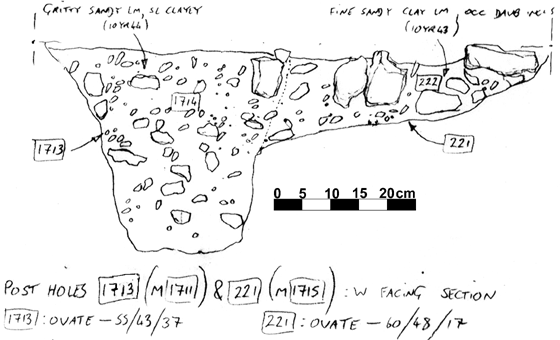 GRITTY SANDY LM, SL CLAYEY
(10YR44)
FINE SANDY CLAY LM, OCC DAUB INCLS
(10YR43)
222
1714
1713
221
0 5 10 15 20cm
POST HOLES 1713 (M 1711) & 221 (M 1715) : W FACING SECTION
1713 : OVATE – 55/43/37
221 : OVATE – 60/48/17